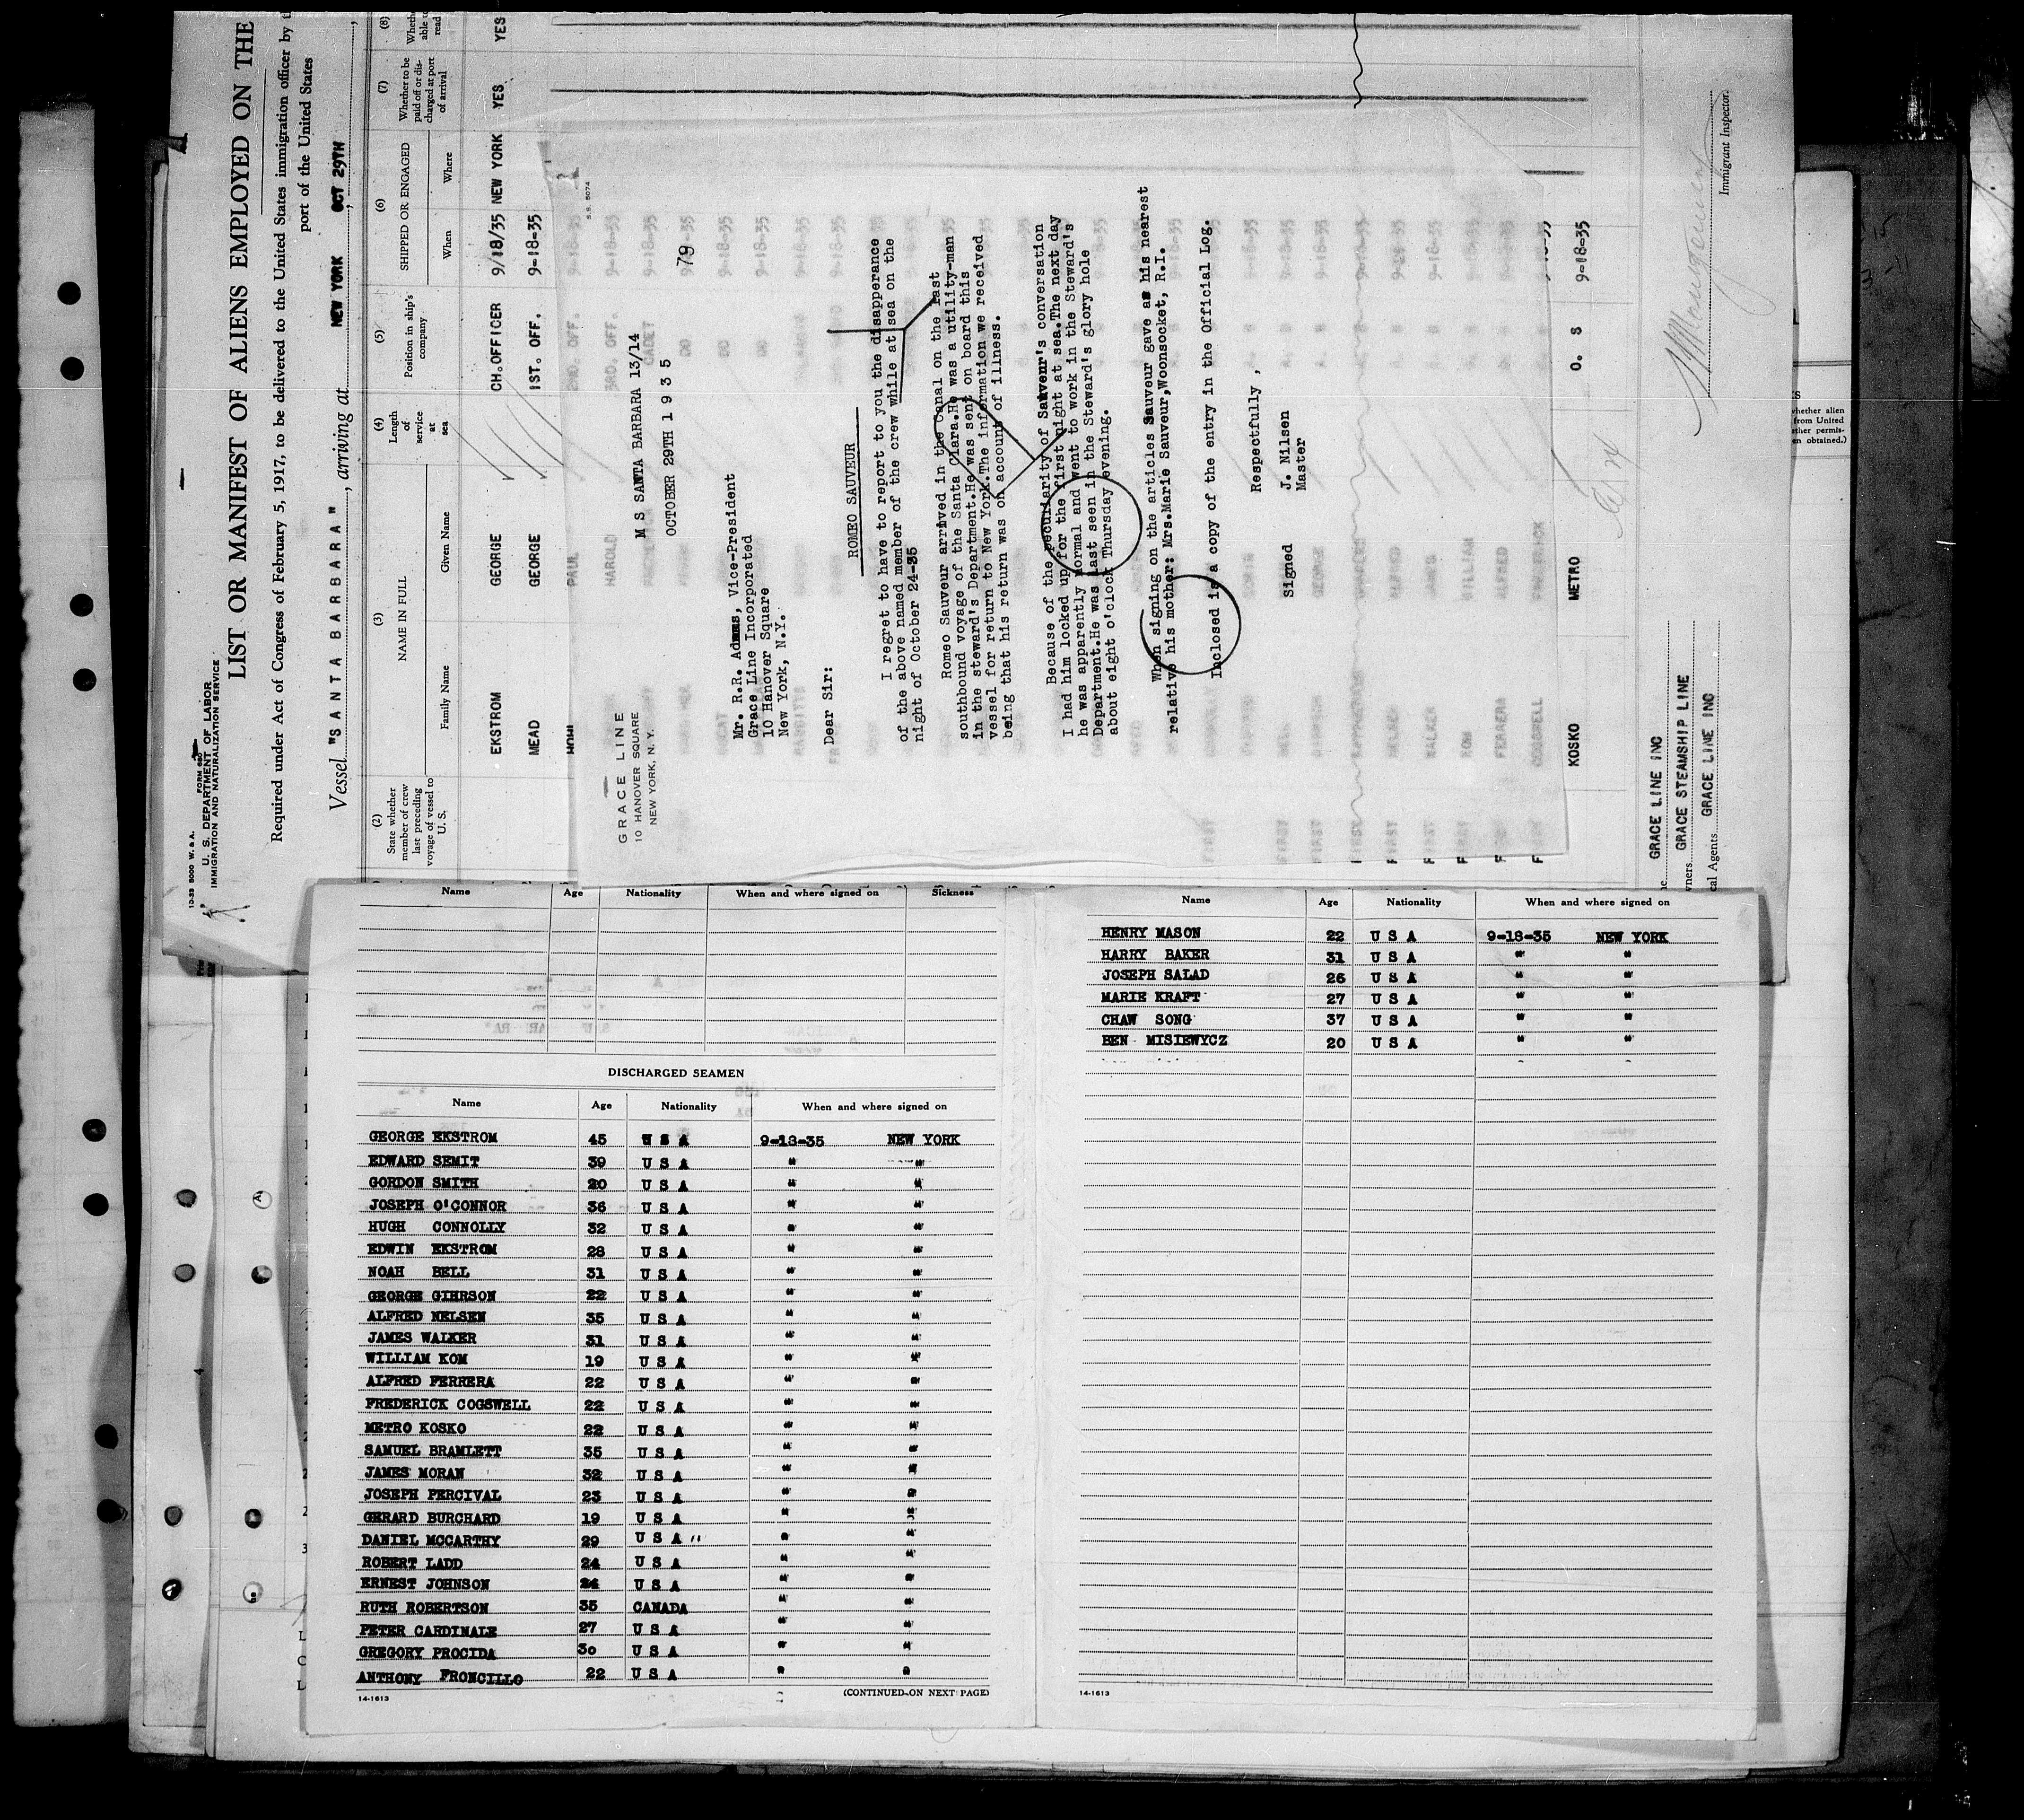 10-33 5000 W. & A.
FORM 689
U. S. DEPARTMENT OF LABOR
IMMIGRATION AND NATURALIZATION SERVICE
LIST OR MANIFEST OF ALIENS EMPLOYED ON THE
Required under Act of Congress of February 5, 1917, to be delivered to the United States immigration officer by
port of the United States
Vessel "SANTA BARBARA", arriving at NEW YORK, OCT 29TH,
(2) State whether member of crew last preceding voyage of vessel to U. S.
(3) NAME IN FULL
Family Name Given Name
(4) Length of service at sea
(5) Position in ship's company
(6) SHIPPED OR ENGAGED
When Where
(7) Whether to be paid off or discharged at port of arrival
(8)
read
EKSTROM GEORGE CH.OFFICER 9/18/35 NEW YORK YES YES
MEAD GEORGE 1ST. OFF. 9-18-35
KOSKO METRO O. S 9-18-35
GRACE LINE INC
GRACE STEAMSHIP LINE
GRACE LINE INC
Immigrant Inspector.
GRACE LINE
10 HANOVER SQUARE
NEW YORK, N. Y.
S.S. 5074
M S SANTA BARBARA 13/14
OCTOBER 29TH 1935
79
Mr. R.R. Adams, Vice-President
Grace Line Incorporated
10 Hanover Square
New York, N.Y.
ROMEO SAUVEUR
Dear Sir:
I regret to have to report to you the disapperance
of the above named member of the crew while at sea on the
night of October 24-35
Romeo Sauveur arrived in the Canal on the last
southbound voyage of the Santa Clara.He was a utility-man
in the steward's Department.He was sent on board this
vessel for return to New York.The information we received
being that his return was on account of illness.
Because of the peculiarity of Sauveur's conversation
I had him locked up for the first night at sea.The next day
he was apparently normal and went to work in the Steward's
Department.He was last seen in the Steward's glory hole
about eight o'clock Thursday evening.
When signing on the articles Sauveur gave as his nearest
relative his mother: Mrs.Marie Sauveur,Woonsocket, R.I.
Inclosed is a copy of the entry in the Official Log.
Respectfully,
Signed J. Nilsen
Master
Name Age Nationality When and where signed on Sickness
DISCHARGED SEAMEN
Name Age Nationality When and where signed on
GEORGE EKSTROM 45 U S A 9-18-35 NEW YORK
EDWARD SEMIT 39 U S A " "
GORDON SMITH 20 U S A " "
JOSEPH O'CONNOR 36 U S A " "
HUGH CONNOLLY 32 U S A " "
EDWIN EKSTROM 28 U S A " "
NOAH BELL 31 U S A " "
GEORGE GIHRSON 22 U S A " "
ALFRED NELSEN 35 U S A " "
JAMES WALKER 31 U S A " "
WILLIAM KOM 19 U S A " "
ALFRED FERRERA 22 U S A " "
FREDERICK COGSWELL 22 U S A " "
METRO KOSKO 22 U S A " "
SAMUEL BRAMLETT 35 U S A " "
JAMES MORAN 32 U S A " "
JOSEPH PERCIVAL 23 U S A " "
GERARD BURCHARD 19 U S A " "
DANIEL MCCARTHY 29 U S A " "
ROBERT LADD 24 U S A " "
ERNEST JOHNSON 24 U S A " "
RUTH ROBERTSON 35 CANADA " "
PETER CARDINALE 27 U S A " "
GREGORY PROCIDA 30 U S A " "
ANTHONY FRONCILLO 22 U S A " "
14-1613 (CONTINUED ON NEXT PAGE)
Name Age Nationality When and where signed on
HENRY MASON 22 U S A 9-18-35 NEW YORK
HARRY BAKER 31 U S A " "
JOSEPH SALAD 26 U S A " "
MARIE KRAFT 27 U S A " "
CHAW SONG 37 U S A " "
BEN MISIEWYCZ 20 U S A " "
14-1613